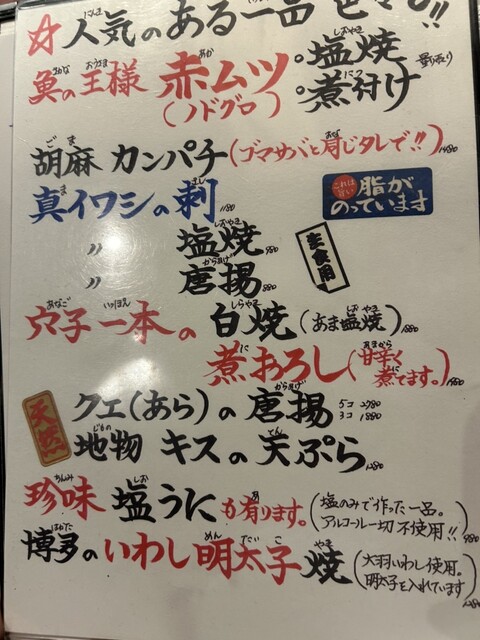 ☆人気のある一品
魚の王様 赤ムツ(ノドグロ)・塩焼・煮付け
胡麻 カンパチ(ゴマサバと同じタレで!!) 1480
真イワシの刺 1180
これは旨い 脂がのっています
〃 塩焼 980
生食用
〃 唐揚 880
穴子一本の白焼(あま塩焼) 1880
煮おろし(甘辛く煮てます。) 1980
天然
クエ(あら)の唐揚 5コ 2780 3コ 1880
地物 キスの天ぷら 1280
珍味 塩うにも有ります。(塩のみで作った一品。アルコール一切不使用!!) 980
博多のいわし明太子焼(大羽いわし使用。明太子を入れています)